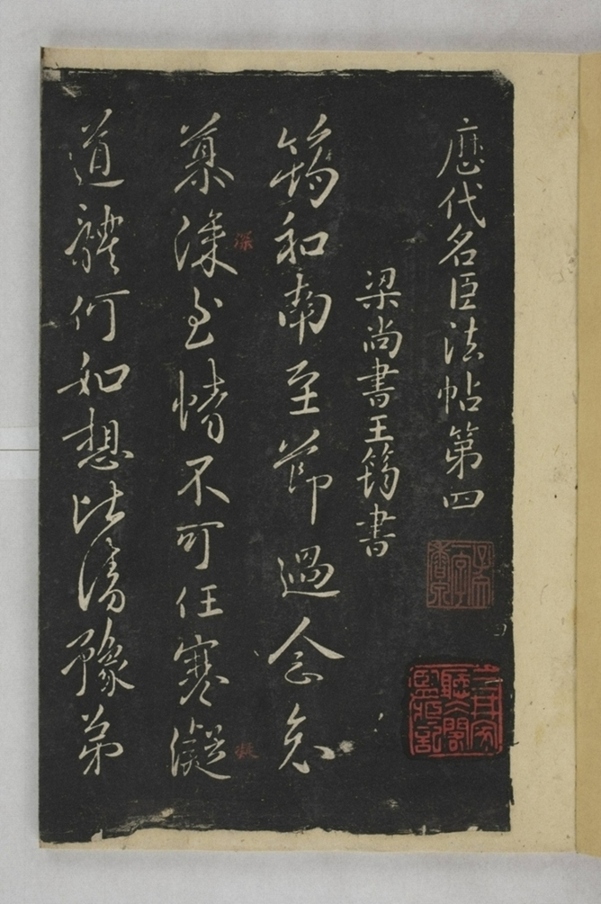 歷代名臣法帖第四
梁尚書王筠書
筠和南至節過念哀
慕深至情不可任寒凝
道體何如想比清豫弟
深
凝